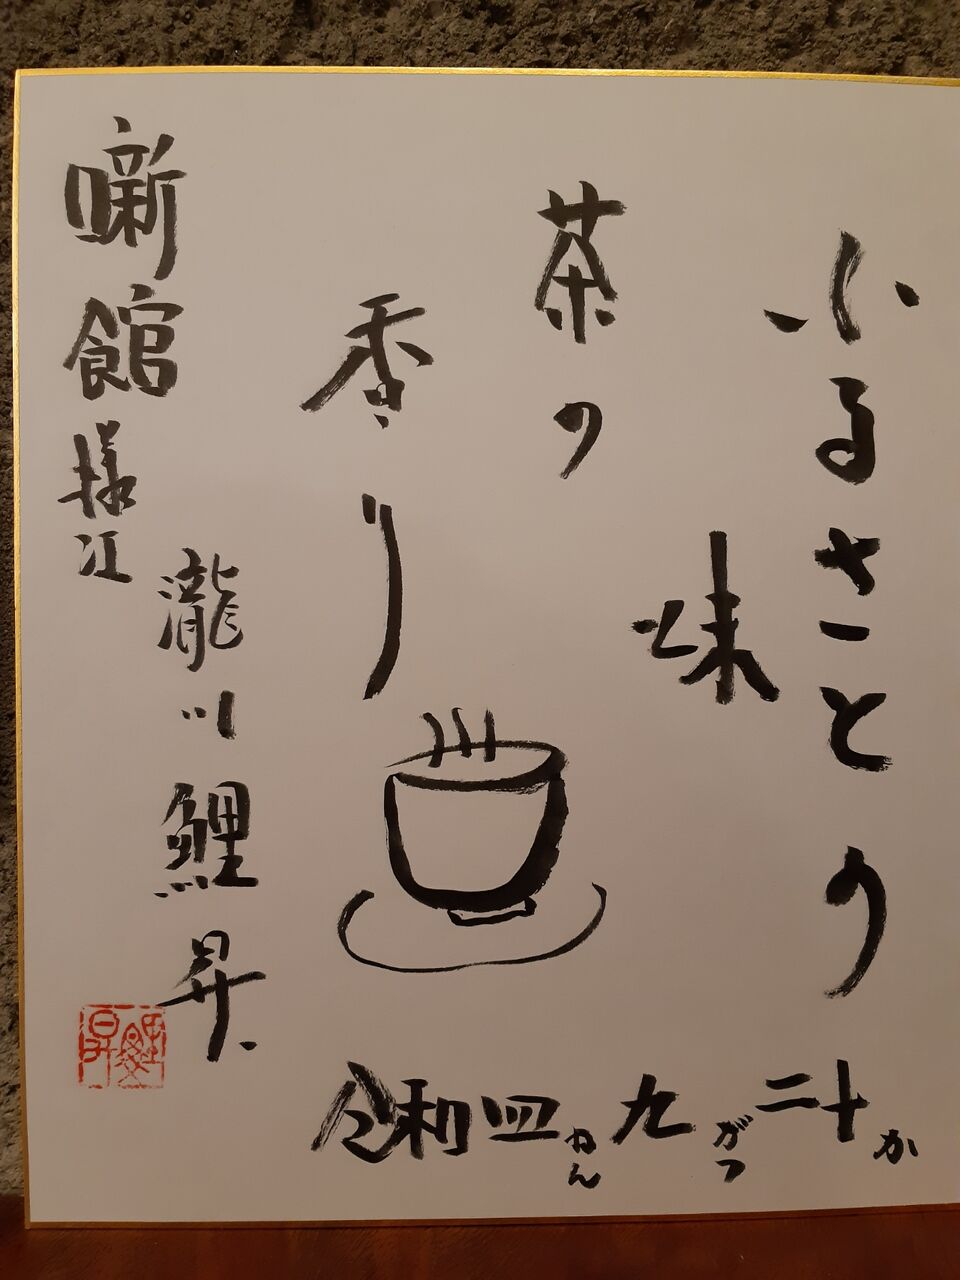 ふるさとの
味
茶の
香り
瀧川鯉昇
噺館様江
令和四ねん九がつ二十か
鯉昇